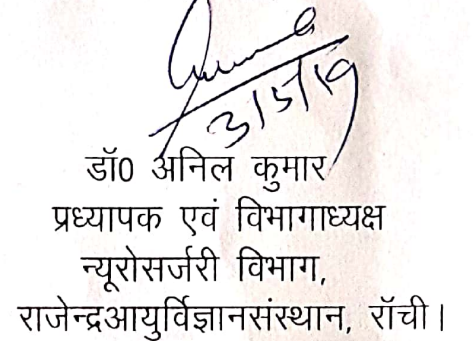 3/5/19
डॉ0 अनिल कुमार
प्रध्यापक एवं विभागाध्यक्ष
न्यूरोसर्जरी विभाग,
राजेन्द्रआयुर्विज्ञानसंस्थान, रॉची।